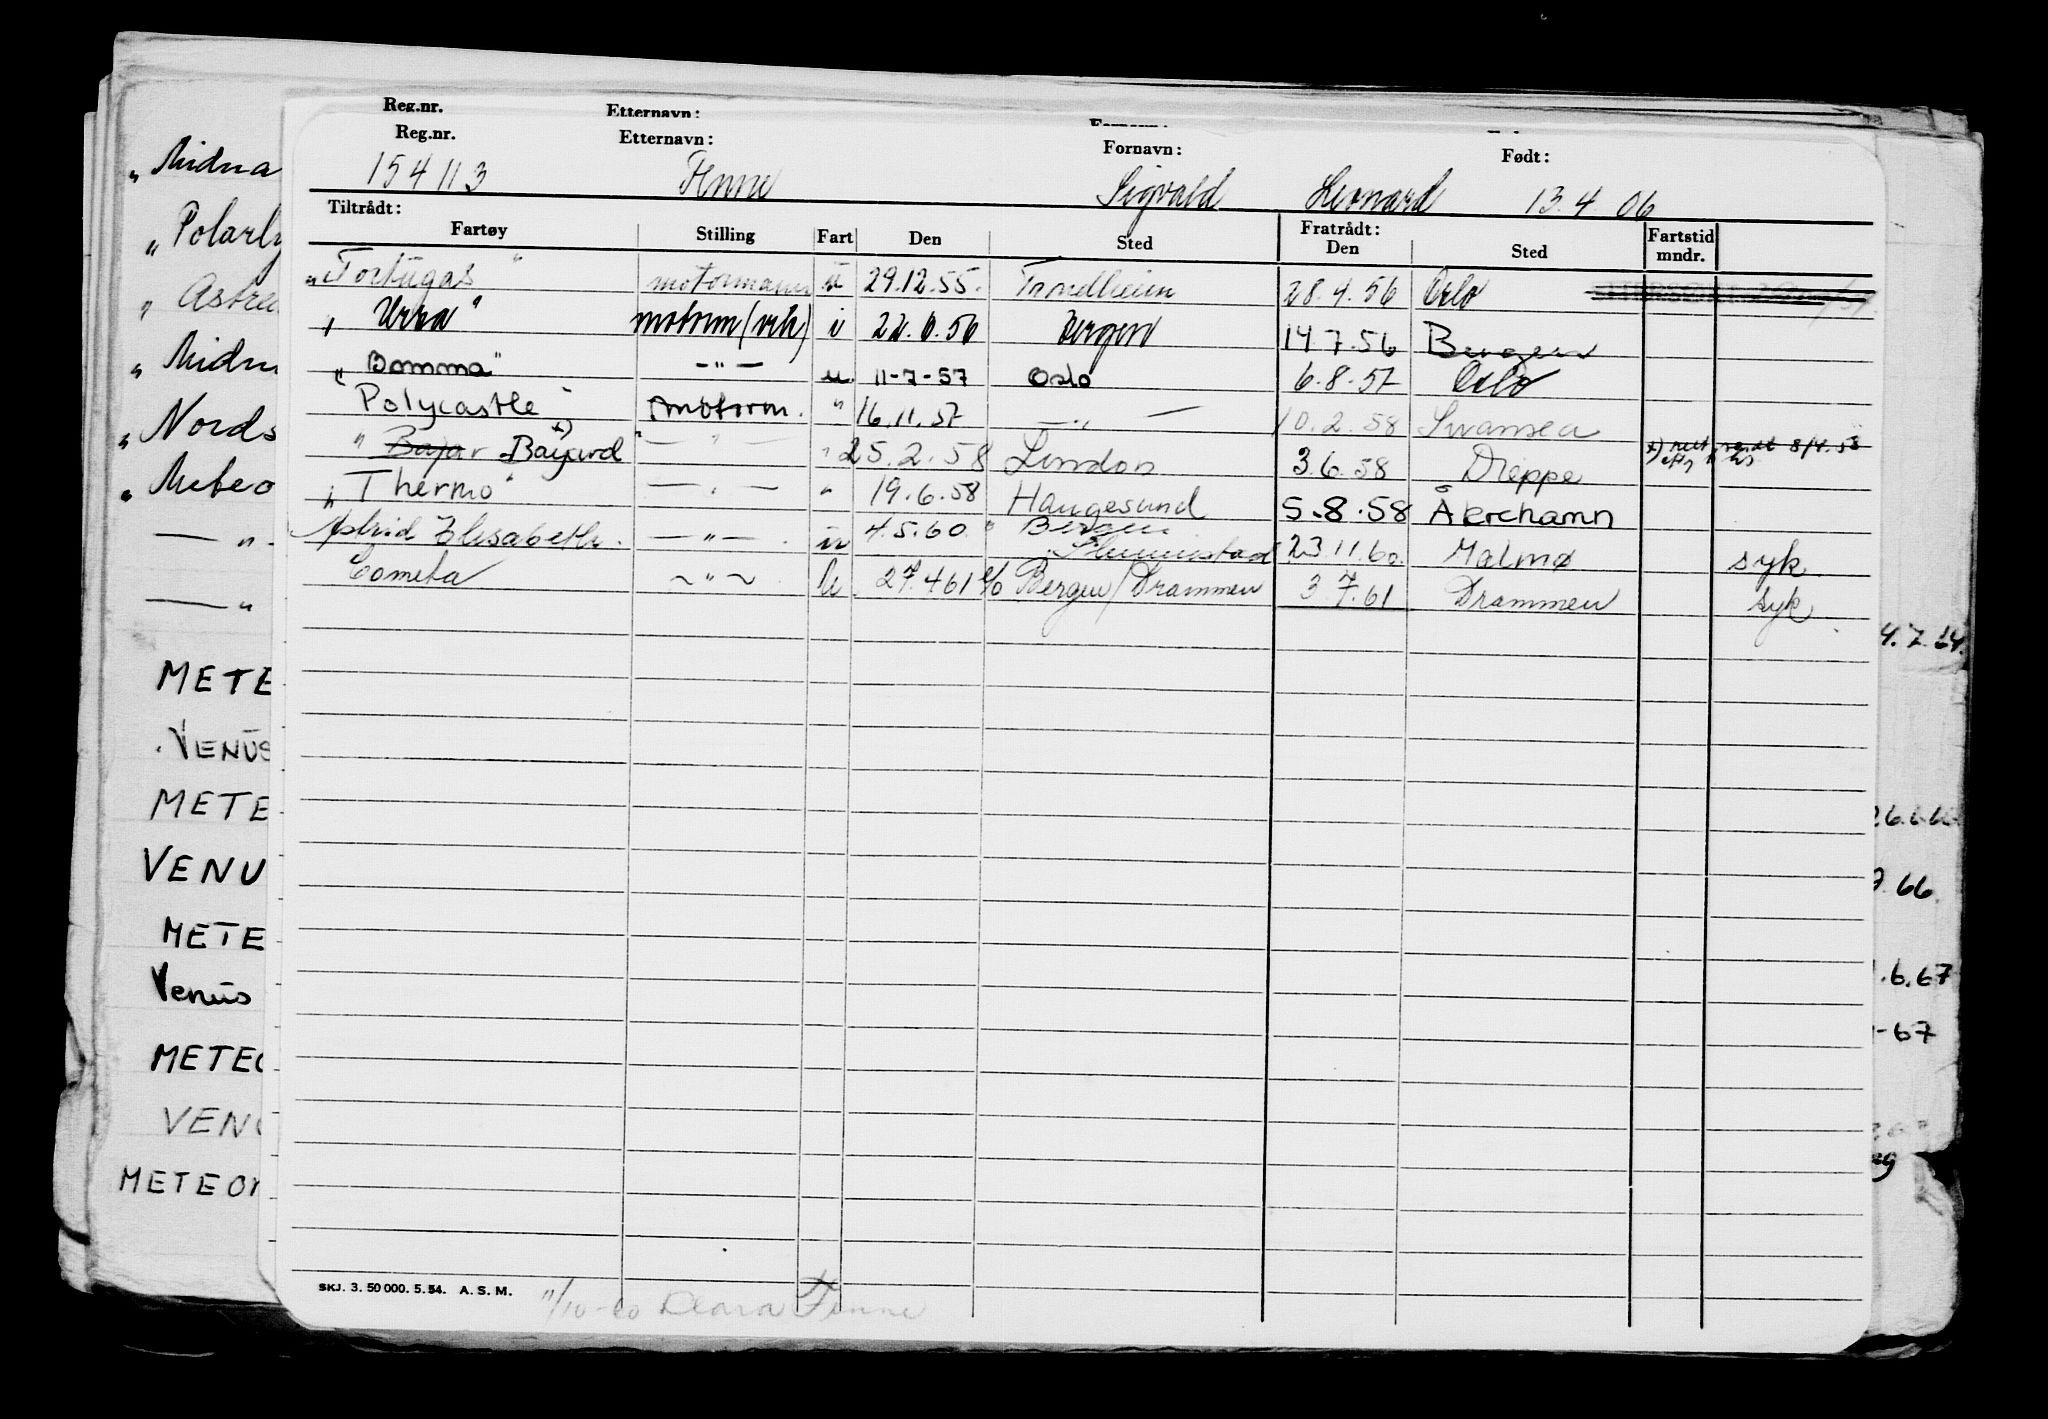 Reg.nr. Etternavn:
Reg.nr. Etternavn: Fornavn: Født:
154113 Finne Sigvald Leonard 13.4 06
Tiltrådt: Fratrådt:
Fartøy Stilling Fart Den Sted Den Sted Fartstid mndr.
„Tortugas" motormann u 29.12.55. Trondheim 28.4.56 Oslo
„ Urra" motorm (vik) i 22.6.56 Bergen 14.7.56 Bergen
„ Bomma" —"— u 11-7-57 Oslo 6.8.57 Oslo
Polycastle motorm. " 16.11.57 —"— 10.2.58 Swansea
" Bajar Bayard x) —"— " 25.2.58 London 3.6.58 Dieppe x) rett 8/4.58
„Thermo" —"— " 19.6.58 Haugesund 5.8.58 Åkrehamn
Astrid Elisabeth. —"— u 4.5.60. Bergen 23.11.60. Malmø syk
Cometa ~"~ u 27.4 61 Bergen/Drammen 3.7.61 Drammen syk
SKJ. 3. 50 000. 5. 54. A. S. M.
11/10-60 Clara Finne
„ Midna
„ Polarly
„ Astrea
„ Midn
„ Nords
„ Meteo
— " -
— "
METE
VENUS
METE
VENU
METE
Venus
METEO
VENU
METEOR
4.7.64.
26.6.66
7.66.
.6.67
-67